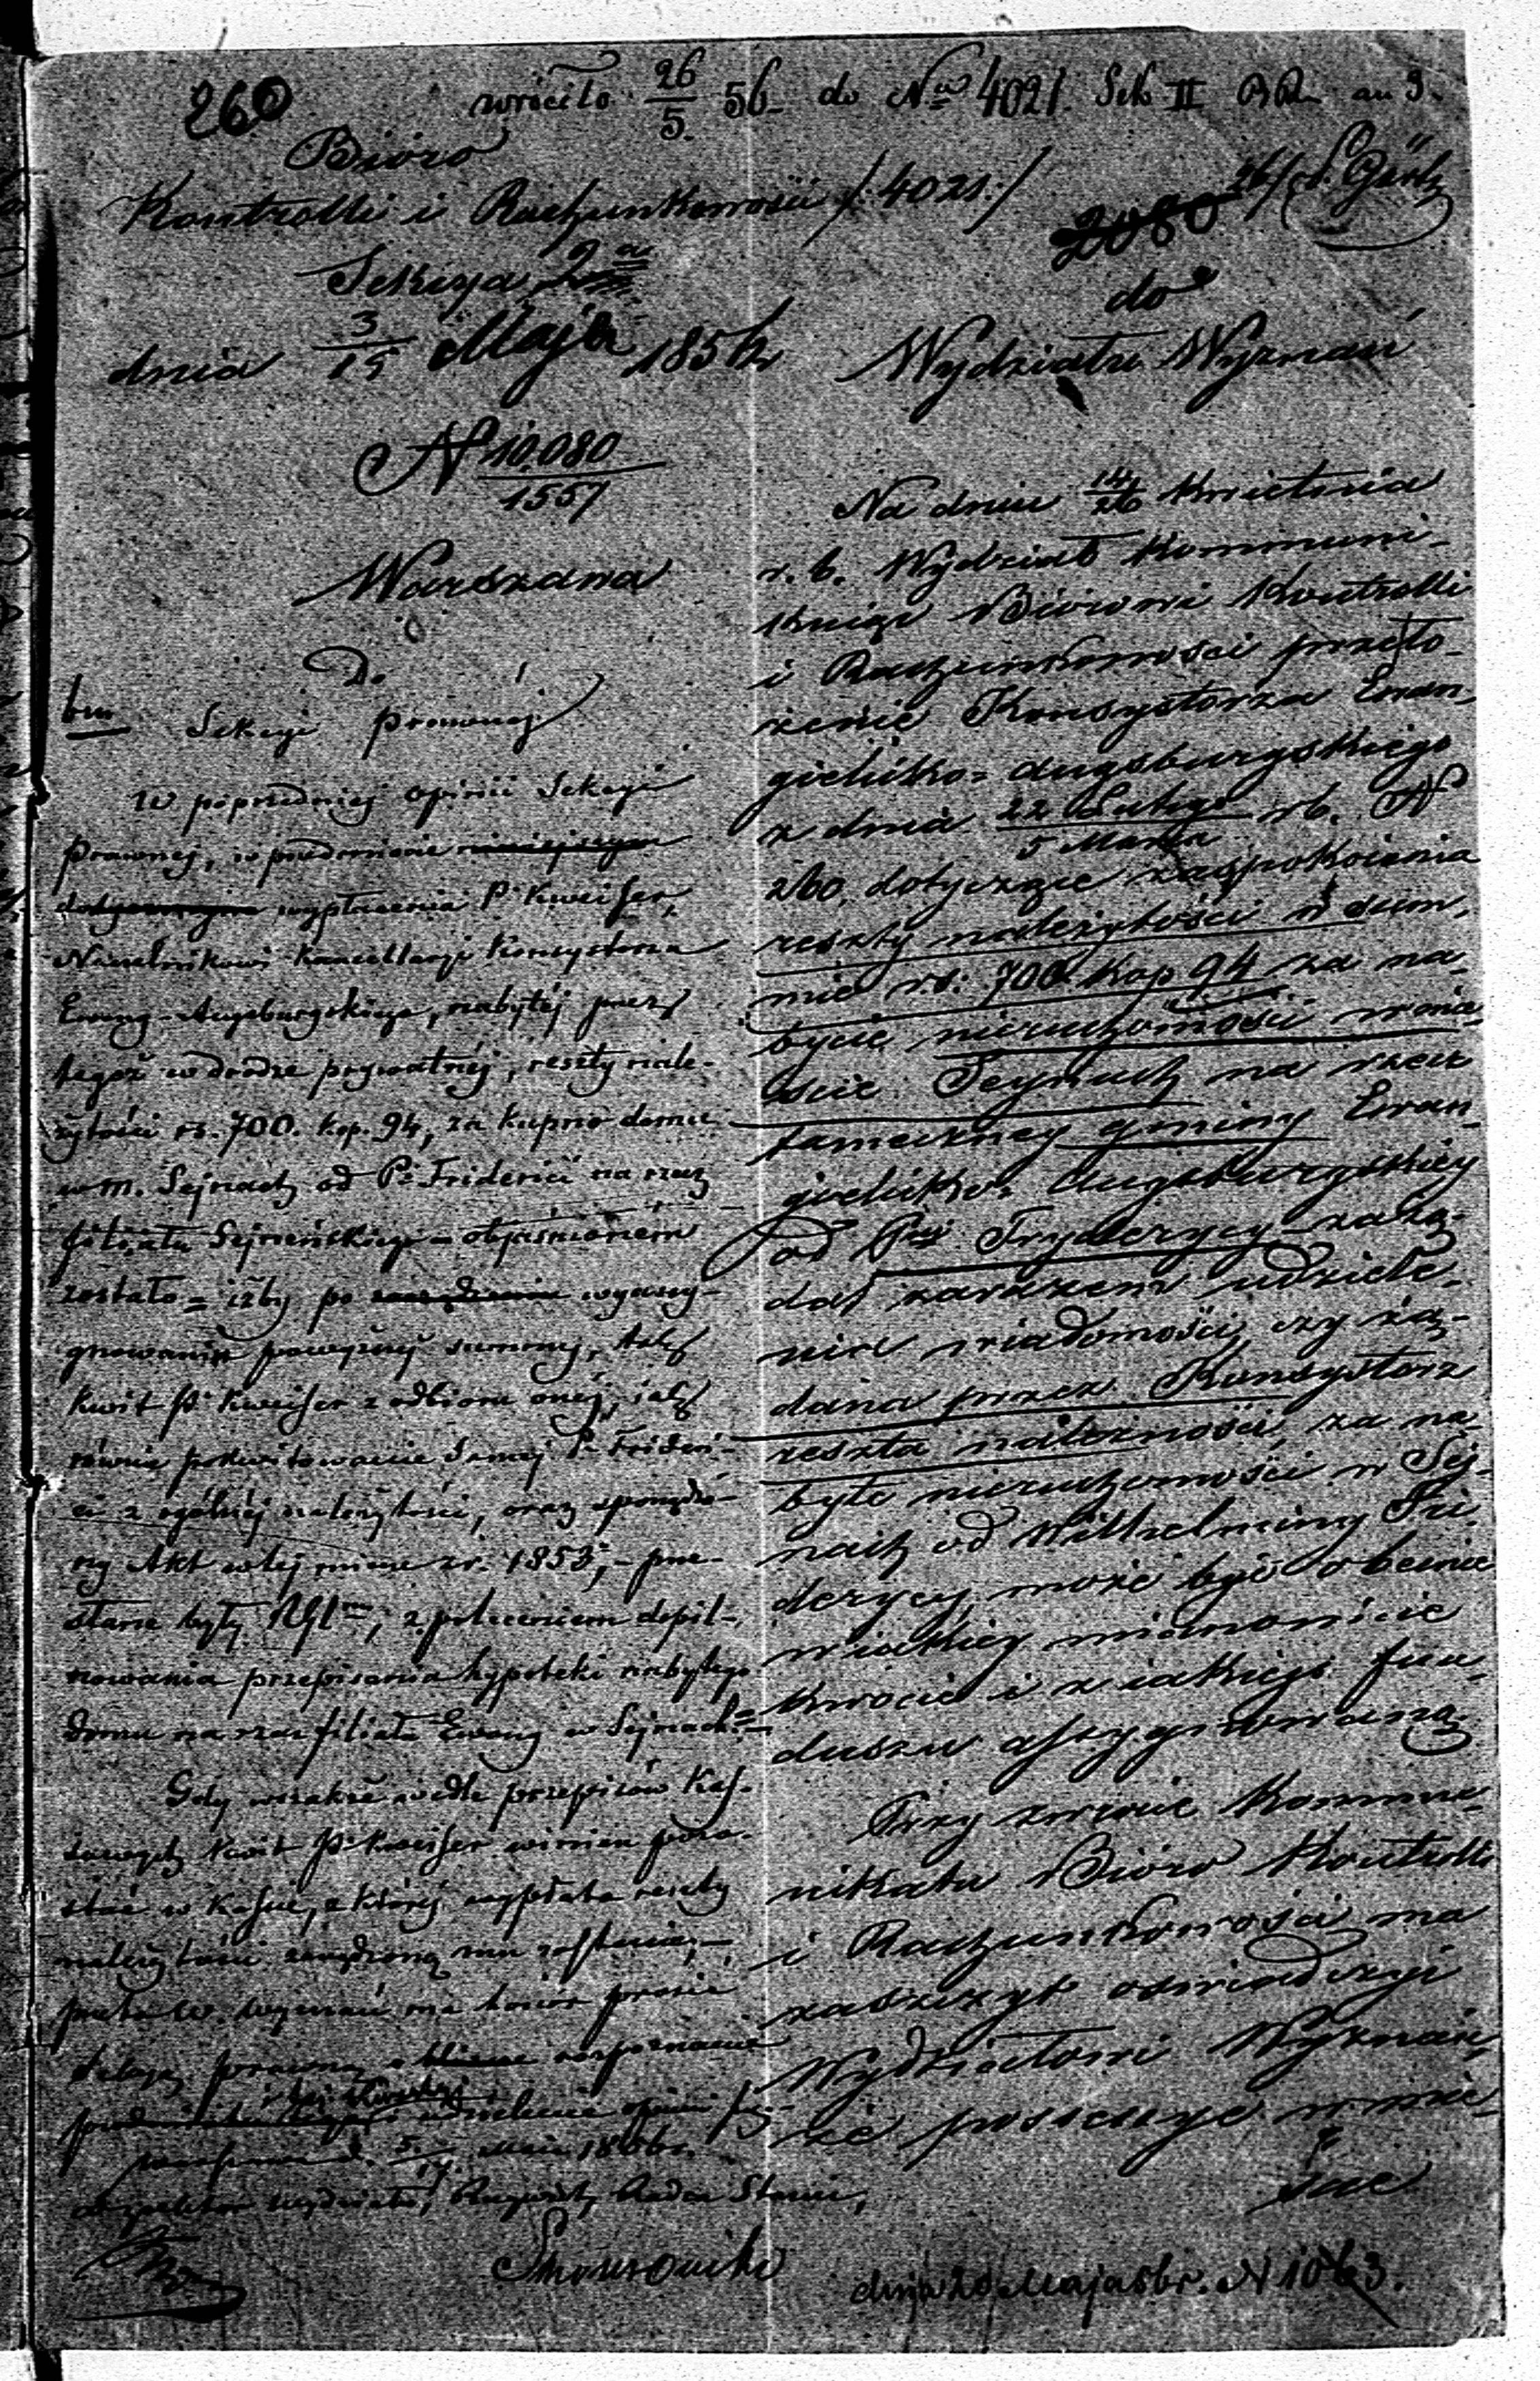 260
wróciło 26/5 56 do Nu 4021. Sek II
Bióro
Kontrolli i Rachunkowości /:4021:/
2080
Sekcya 2a
do
dnia 3/15 Maja 1856 r.
Wydziału Wyznań
N 10.080/1557
Warszawa
Do
bm Sekcyi Prawnej
W poprzedniej opinii Sekcyi
Prawnej, w przedmiocie niniejszym
dotyczącym wypłacenia P. Kweisser,
Naczelnikowi Kancellaryi Konsystorza
Ewang-Augsburgskiego, nabytéj przez
tegoż w drodze prywatnéj, reszty nale-
żytości rs. 700. kop. 94, za kupno domu
w m. Sejnach od Pi Friderici na rzecz
filiału Sejneńskiego – objaśnionem
zostało = iżby po wyasy-
gnowaniu powyższéj summy, tak
kwit P. Kweisser z odbioru onéj, jak
równie pokwitowanie samej Pi Frideri-
ci z ogólnéj należytości, oraz sporządzo-
ny Akt w tej mierze w r. 1853, – prze-
słane były, z poleceniem dopil-
nowania przepisania hypoteki nabytego
domu na rzecz filiału Ewang w Sejnach. =
Gdy wszakże wedle przepisów Kas-
sowych kwit P. Kweisser winien pozo-
stać w Kassie, z której wypłata reszty
należytości zarządzoną mu zostanie, –
przeto W. Wyznań ma honor prosić
Sekcyę prawną o rozpoznanie
udzielenie opinii
d. 5/17 Maja 1856 r.
Wydziału, Radca Stanu,
Na dniu 14/26 Kwietnia
r. b. Wydział kommuni-
kując Biórowi Kontrolli
i Rachunkowości przeło-
żenie Konsystorza Ewan-
gielicko-Augsburgskiego
z dnia 22 Lutego/5 Marca rb. N
260, dotyczące zaspokoienia
reszty należytości w sum-
mie rs: 700 kop 94 za na-
bycie nieruchomości w mie-
ście Seynach na rzecz
tameczney gminy Ewan-
gielicko-Augsburgskiey
od Pni Fryderycy zażą-
dał zarazem udziele-
nia wiadomości, czy żą-
dana przez Konsystorz
reszta należności, za na-
byte nieruchomości w Sej-
nach od Wilhelminy Fri-
derycy, może być obecnie
w iakiey mianowicie
kwocie i z iakiego fun-
duszu assygnowaną.
Przy zwrocie kommu-
nikatu Bióro Kontrolli
i Rachunkowości ma
zaszczyt oświadczyć
Wydziałowi Wyznań,
że pozycya w mie-
ście
dnia 20 Maja 56 r. N 1063.